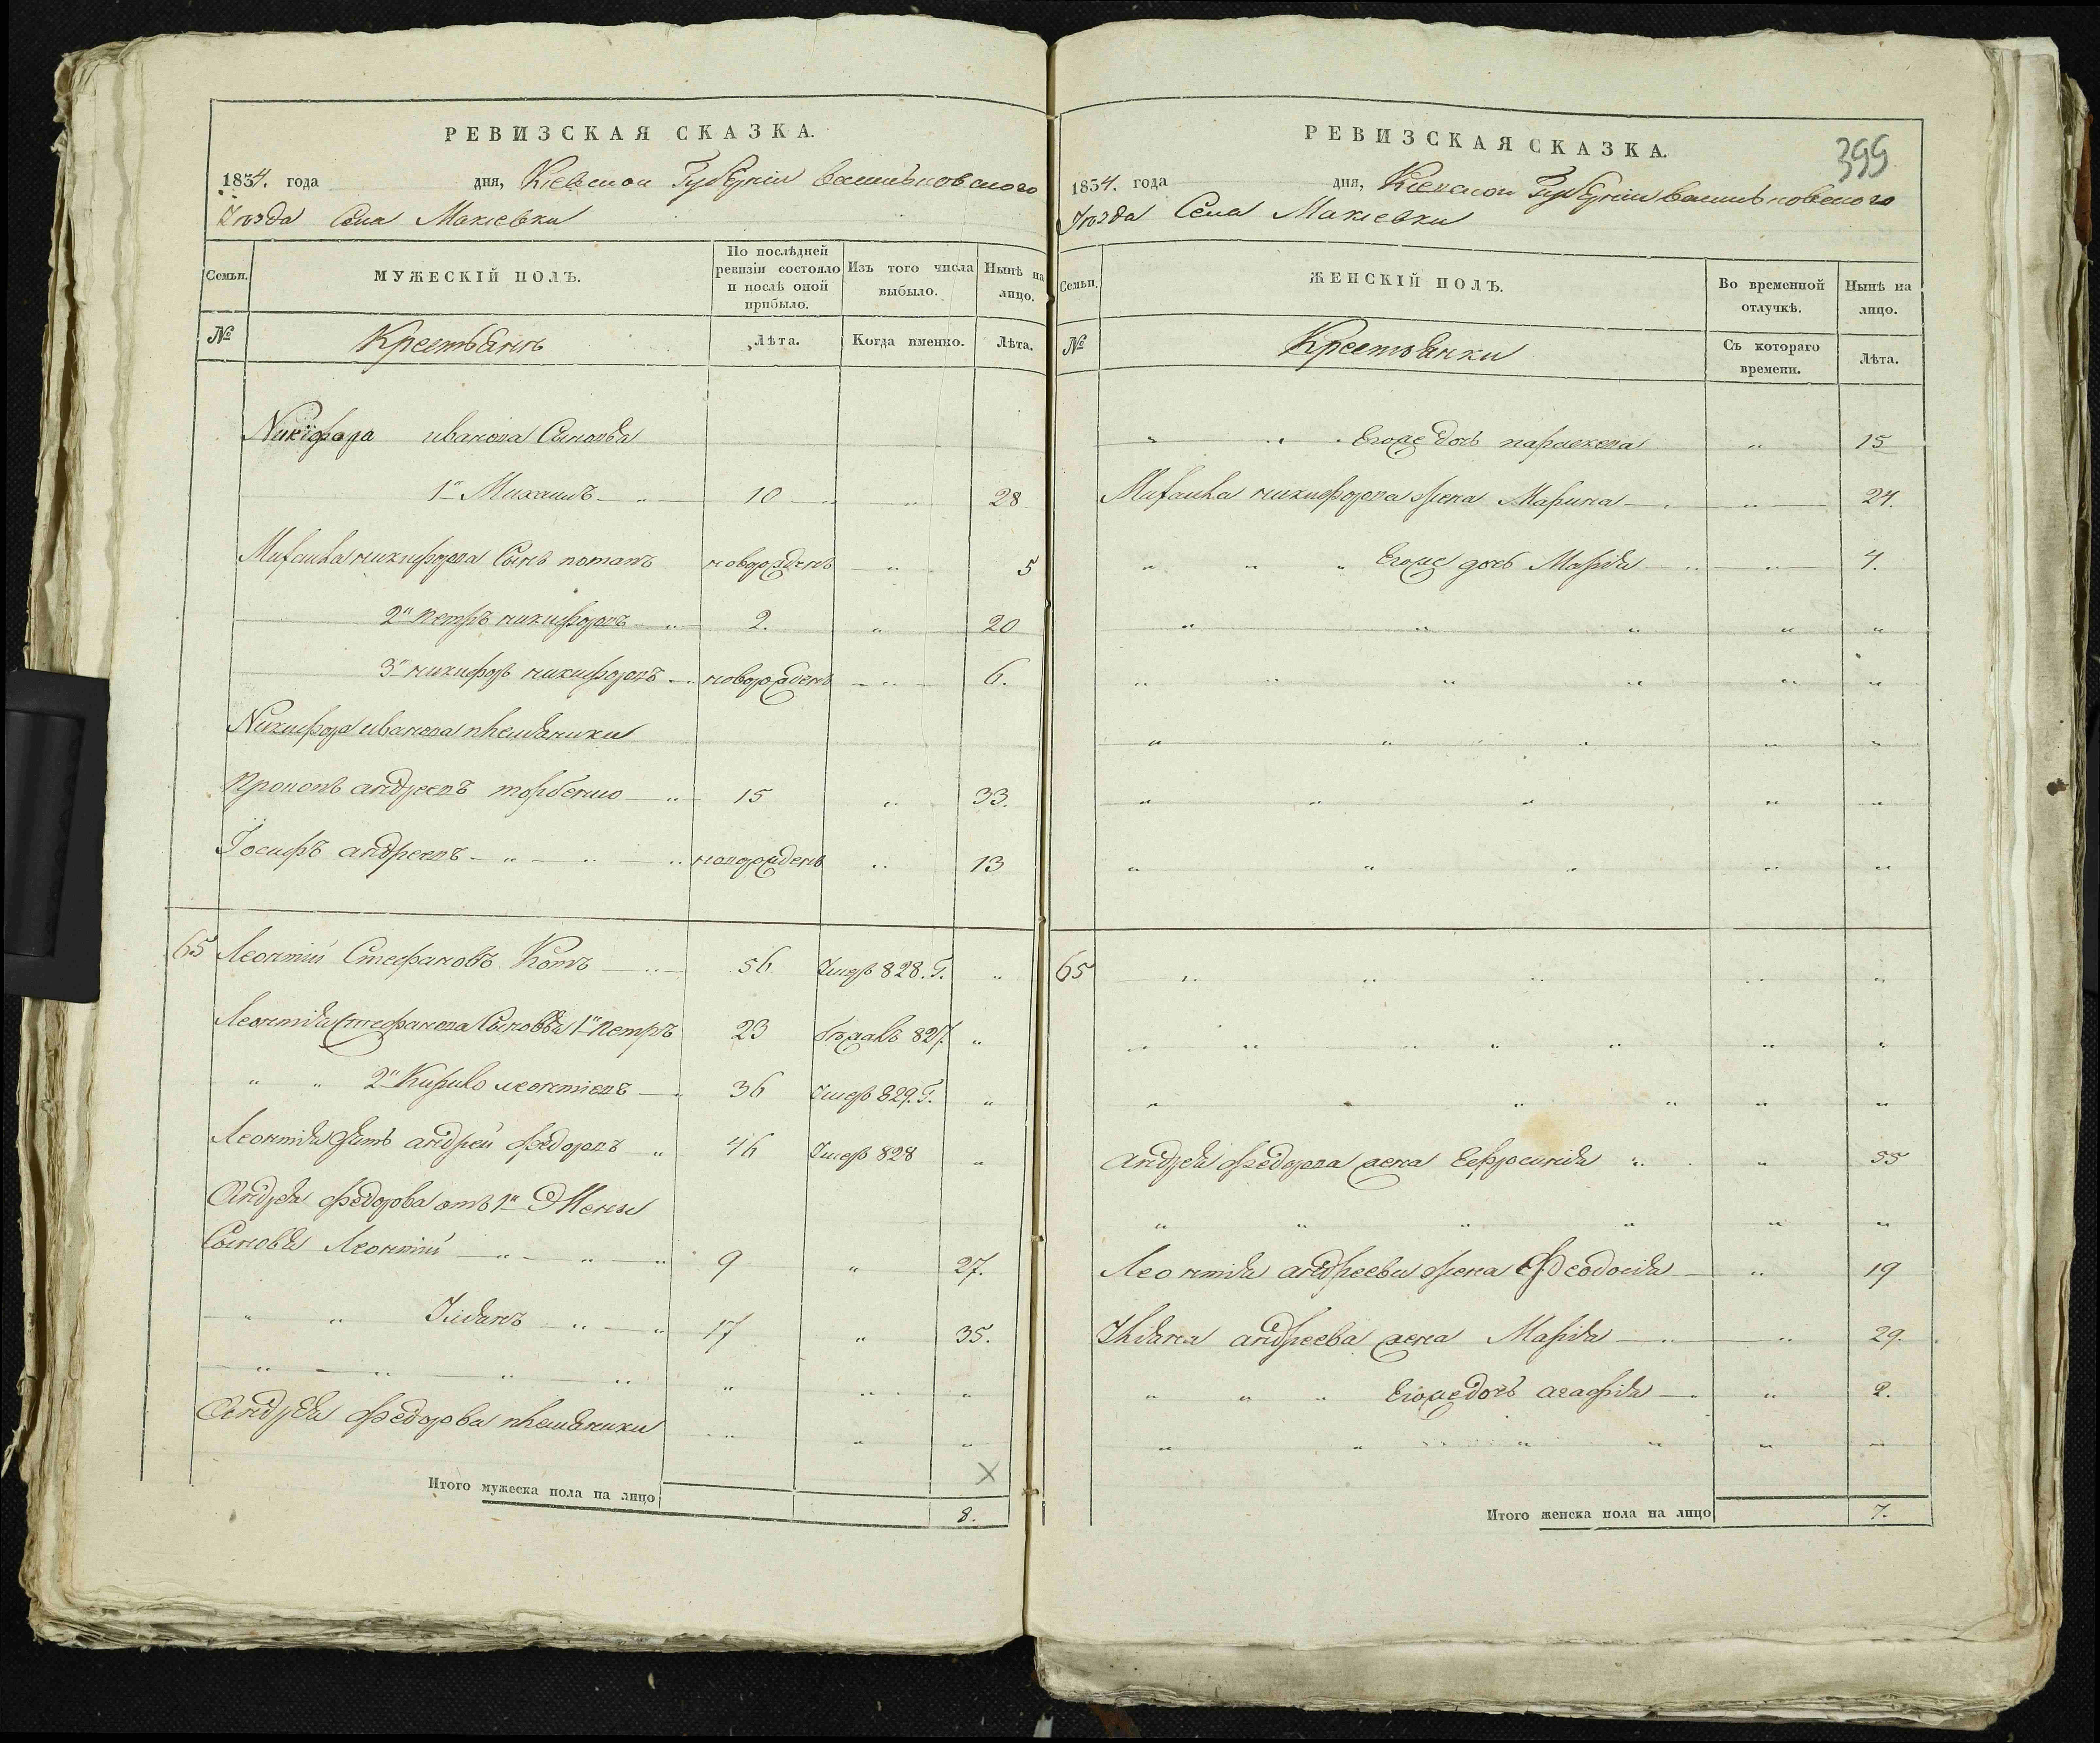 РЕВИЗСКАЯ СКАЗКА.
1834. года дня, Кіевской Губерніи васильковского
Уезда Села Макіевки
Семьи. МУЖЕСКІЙ ПОЛЪ. По послѣдней ревизіи состояло и послѣ оной прибыло. Изъ того числа выбыло. Нынѣ на лицо.
№ Крестьяне Лѣта. Когда именно. Лѣта.
Никифора иванова Сыновья
1й Михаилъ 10 " 28
Михаила никифорова Сынъ потапъ новорожденъ " 5
2й петръ никифоровъ 2. " 20
3й никифоръ никифоровъ новорожденъ " 6.
Никифора иванова племяники
Прокопъ андреевъ торбенко 15 " 33.
Іосифъ андреевъ новорожденъ " 13
65 Леонтій Стефановъ Котъ 56 Умеръ 828. Г. "
Леонтія Стефанова Сыновья 1й петръ 23 бежалъ 827. "
" " 2й Кирило леонтіевъ 36 Умеръ 829. Г. "
Леонтія зять андрей федоровъ 46 Умеръ 828 "
Андрея федорова отъ 1й Жены
Сыновья Леонтій 9 " 27.
" " Улянъ 17 " 35.
" " " " " " "
Андрея федорова племяники " " "
Итого мужеска пола на лицо 8.
399
РЕВИЗСКАЯ СКАЗКА.
1834. года дня, Кіевской Губерніи васильковского
Уезда Села Макіевки
Семьи. ЖЕНСКІЙ ПОЛЪ. Во временной отлучкѣ. Нынѣ на лицо.
№ Крестьянки Съ котораго времени. Лѣта.
" " Егоже дочь параскева " 15
Михаила никифорова жена Марина " 24.
" " " Егоже дочь Марія " 4.
" " " " "
" " " " " "
" " " " "
" " " " "
" " " " "
65 " " " " "
" " " " " " "
" " " " " "
Андрея федорова жена Ефросинія " 55
" " " " " "
Леонтія андреева жена Феодосія " 19
Уляна андреева жена Марія " 29.
" " " Егоже дочь агафія " 2.
" " " " " "
Итого женска пола на лицо 7.